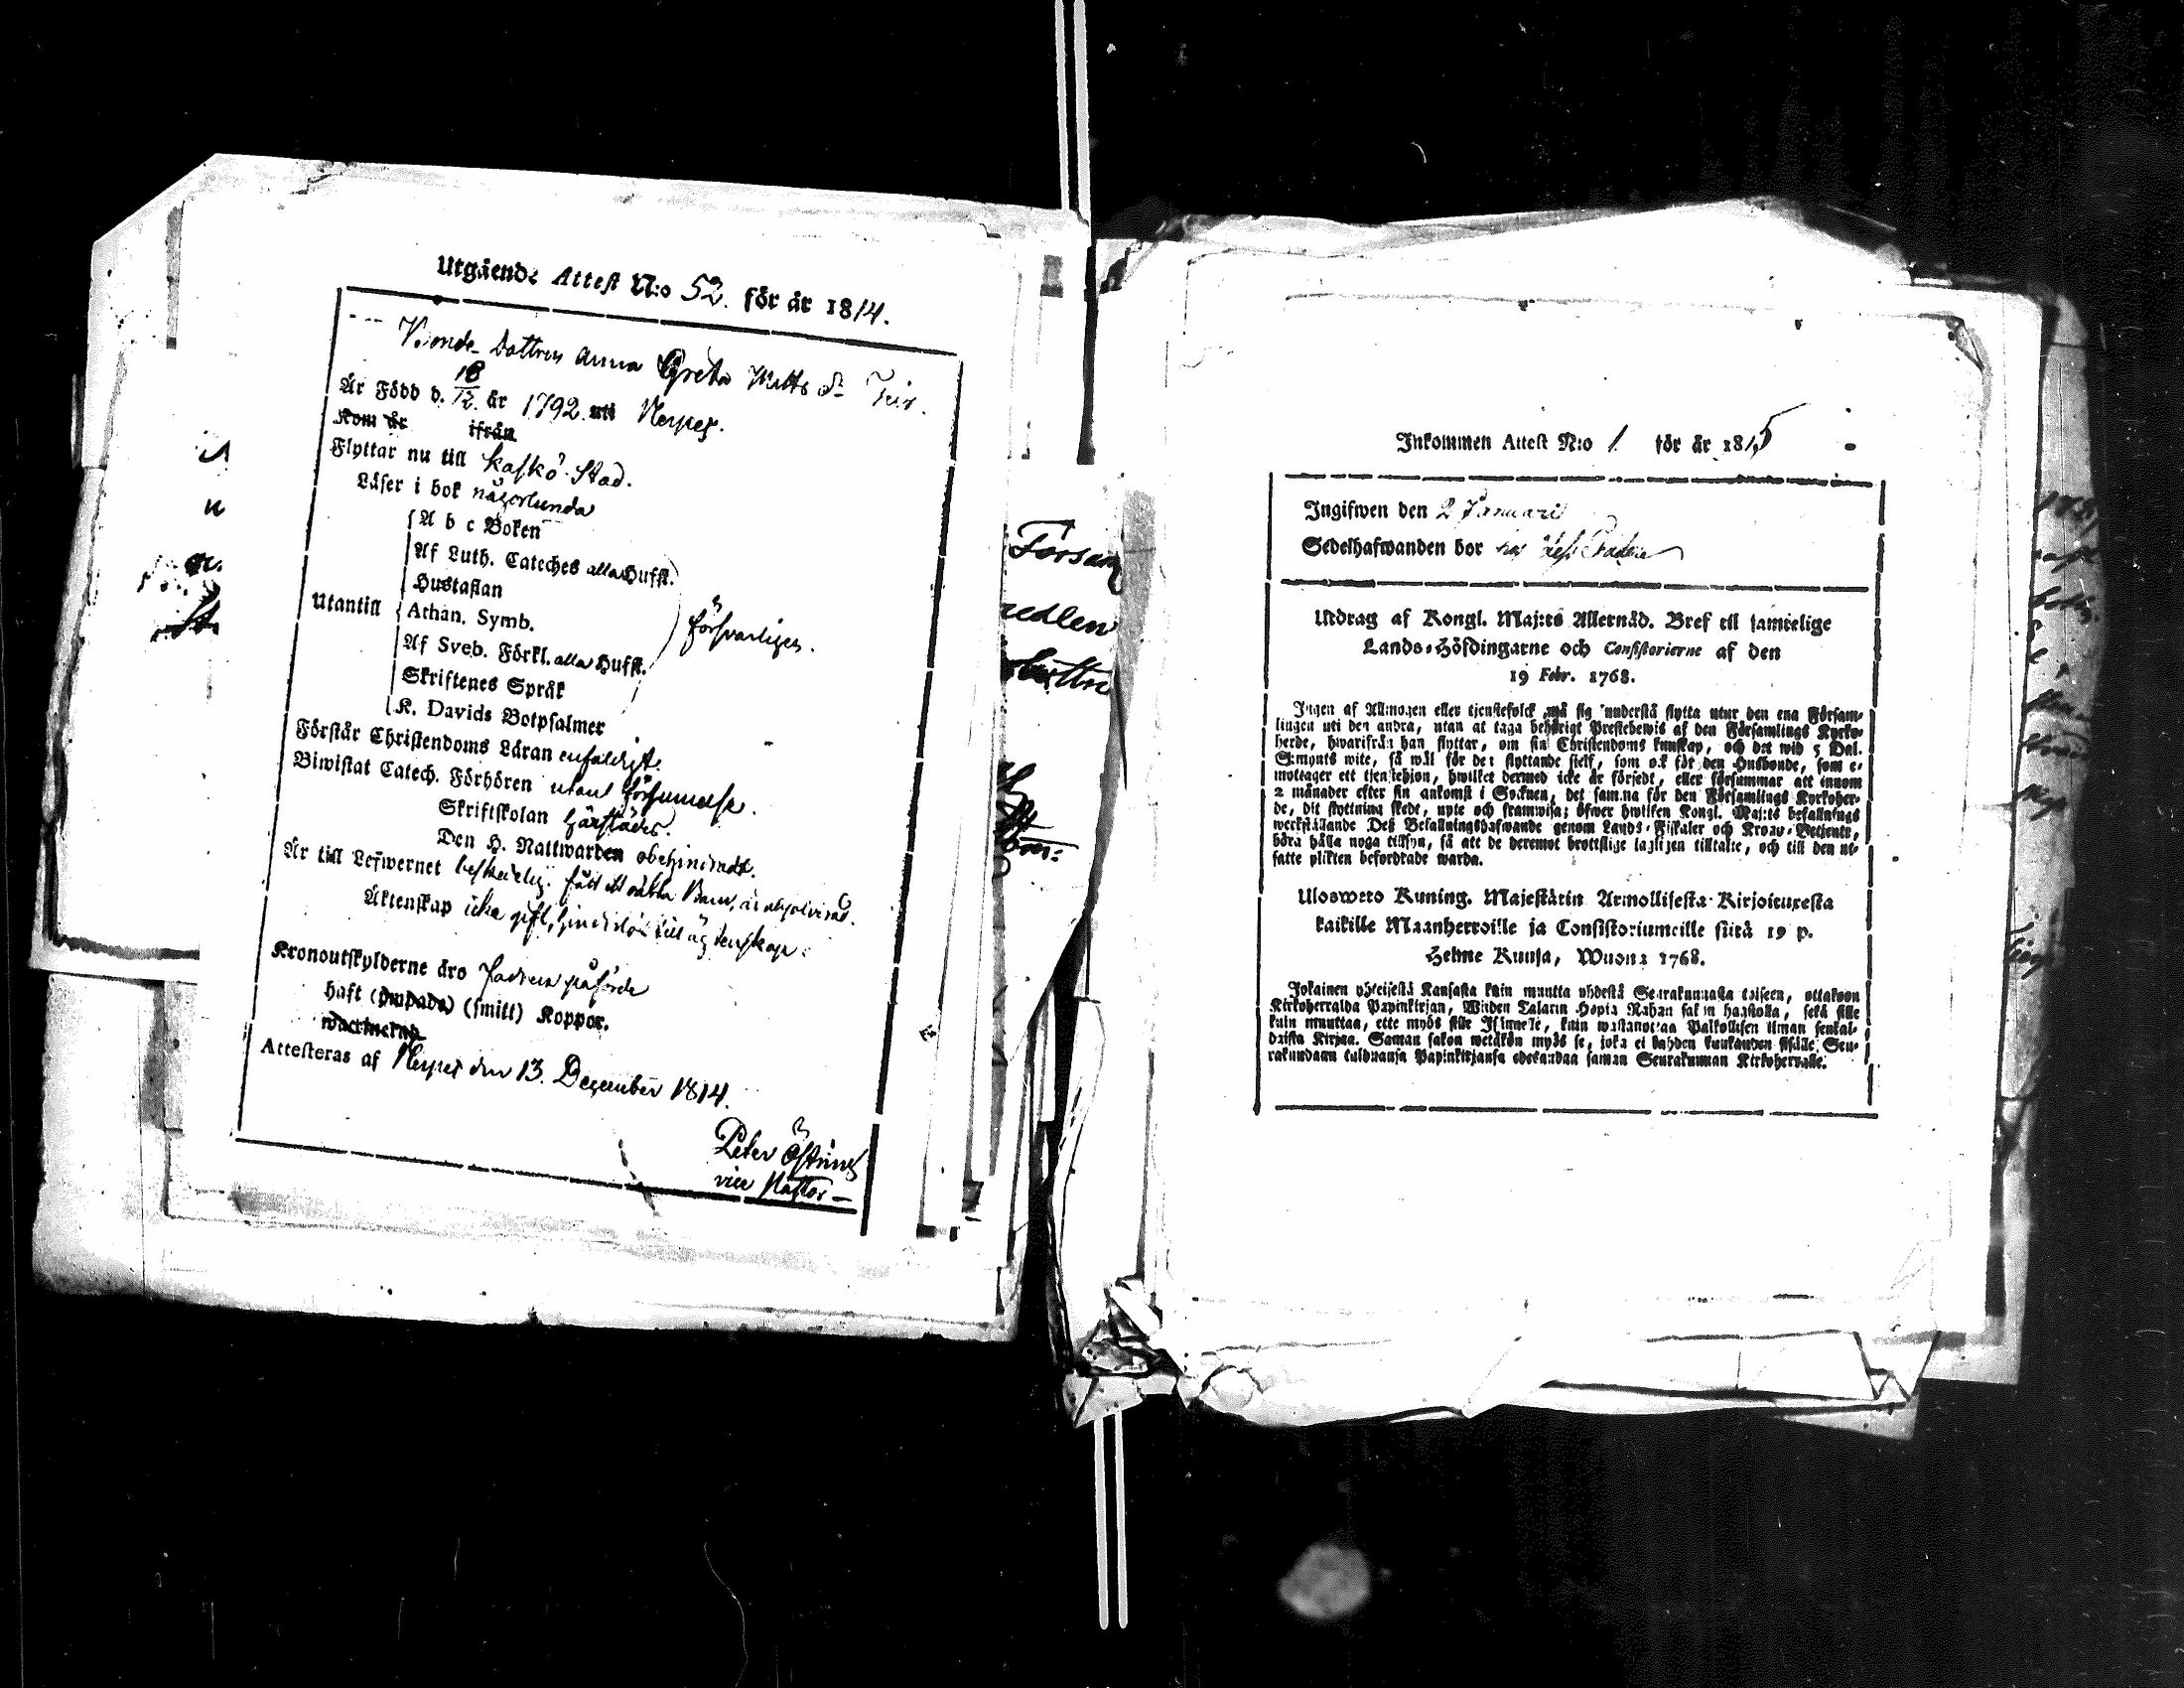 Utgående Attest N:o 52. för år 1814.
Bonde-Dottren Anna Greta Matts dr
Är Född d. 18/12. år 1792. uti Nerpes.
Kom år ifrån
Flyttar nu till Kaskö Stad.
Läser i bok någorlunda
A b c Boken
Af Luth. Cateches alla Hufst.
Hustaflan
Utantill Athan. Symb. försvarligen.
Af Sveb. Förkl. alla Hufst.
Skriftenes Språk
K. Davids Botpsalmer
Förstår Christendoms Läran enfaldigt.
Biwistat Catech. Förhören utan försummelse.
Skriftskolan härstädes.
Den H. Nattwarden obehindrad.
Är till Lefwernet beskedlig. fått ett oäkta Barn, är absolverad.
Äktenskap icke gift, hinderslös till ägtenskap.
Kronoutskylderne äro Fadren påförde
Haft (ympade) (smitt) Koppor.
Attesteras af Nerpes den 13. December 1814.
Peter
vice Pastor
Försam
redlen
Inkommen Attest N:o 1 för år 1815
Ingifwen den 2 Januari
Sedelhafwanden bor
Utdrag af Kongl. Maj:ts Allernåd. Bref till samtelige
Lands-Höfdingarne och Consistorierne af den
19 Febr. 1768.
Ingen af Allmogen eller tjenstefolck må sig understå flytta utur den ena Försam-
lingen uti den andra, utan at taga behörigt Prestebewis af den Församlings Kyrko-
herde, hwarifrån han flyttar, om sin Christendoms kunskap, och det wid 5 Dal.
S:mynts wite, så wäl för den flyttande sielf, som ock för den Husbonde, som e-
mottager ett tjenstehjon, hwilket dermed icke är försedt, eller försummar att innom
2 månader efter sin ankomst i Socknen, det samma för den Församlings Kyrkoher-
de, dit flyttning skedt, upte och framwisa; öfwer hwilken Kongl. Maj:ts befallnings
werkställande Deß Befallningshafwande genom Lands-Fiskaler och Krono-Betjente,
böra hålla noga tillsyn, så att de deremot brottslige lagligen tilltalte, och till den ut-
satte plikten befordrade warda.
Ulosweto Kuning. Majestätin Armollisesta Kirjoituxesta
kaikille Maanherroille ja Consistoriumeille siitä 19 p.
Helme Kuusa, Wuona 1768.
Jokainen yhteisestä Kansasta kuin muutta yhdestä Seurakunnasta toiseen, ottakoon
Kirkoherralda Papinkirjan, Wijden Talarin Hopia Rahan sakon haastolla, sekä sille
kuin muuttaa, ette myös sille Isännelle, kuin wastanottaa Palkollisen ilman senkal-
daista Kirjaa. Saman sakon wetäkön myös se, joka ei kahden kuukauden sisälle Seu-
rakundaan tulduansa Papinkirjansa edeskandaa saman Seurakunnan Kirkoherralle.